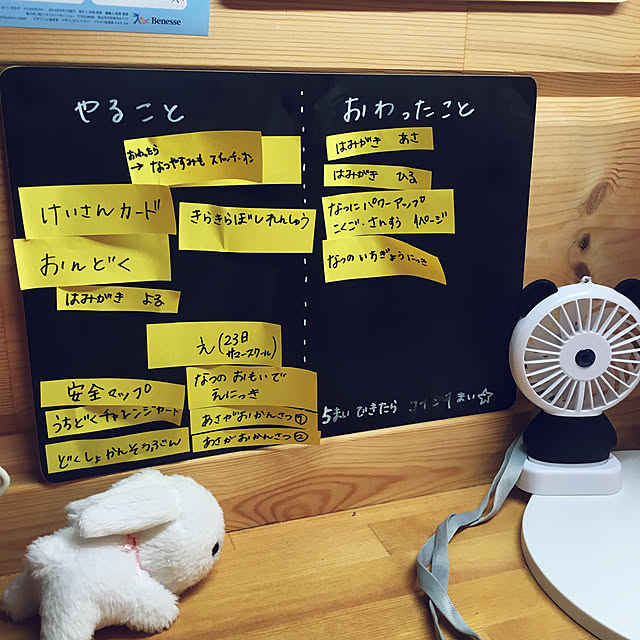 Benesse
やること
おわったら
→ なつやすみも スイッチ・オン
けいさんカード
きらきらぼしれんしゅう
おんどく
はみがき よる
え(23日
サマースクール)
安全マップ
うちどくチャレンジカード
どくしょかんそうぶん
なつの おもいで
えにっき
あさがおかんさつ①
あさがおかんさつ②
おわったこと
はみがき あさ
はみがき ひる
なつに パワーアップ
こくご・さんすう 1ページ
なつの いちぎょうにっき
5まい できたら コイン1まい☆